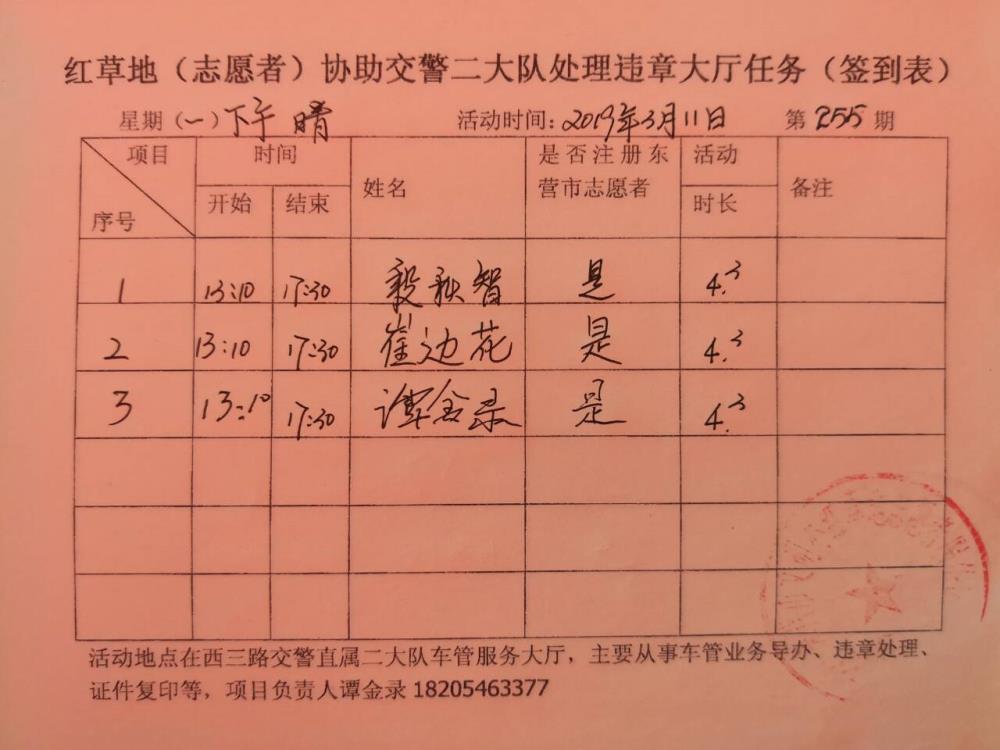 红草地（志愿者）协助交警二大队处理违章大厅任务（签到表）
星期（一）下午 晴 活动时间：2019年3月11日 第255期
项目 时间 姓名 是否注册东营市志愿者 活动时长 备注
序号 开始 结束
1 13:10 17:30 是 4.3
2 13:10 17:30 崔边花 是 4.3
3 13:10 17:30 谭金录 是 4.3
活动地点在西三路交警直属二大队车管服务大厅，主要从事车管业务导办、违章处理、
证件复印等，项目负责人谭金录 18205463377